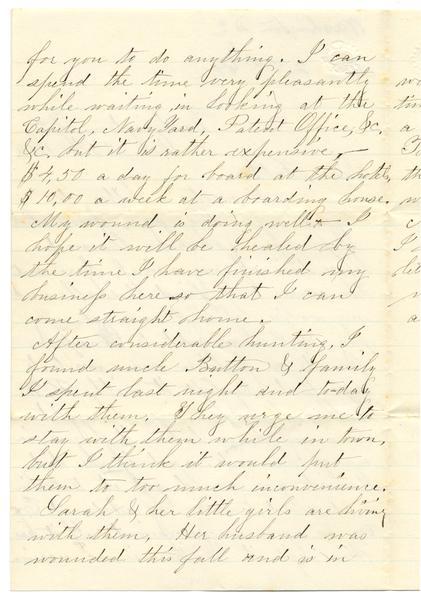 for you to do anything. I can
spend the time very pleasantly
while waiting, in looking at the
Capitol, Navy Yard, Patent Office, &c.
&c. but it is rather expensive,
$4,50 a day for board at the hotels,
$10,00 a week at a boarding house.
My wound is doing well & I
hope it will be healed by
the time I have finished my
business here so that I can
come straight home.
After considerable hunting, I
found uncle Button & family
I spent last night and to-day
with them. They urge me to
stay with them while in town,
but I think it would put
them to too much inconvenience.
Sarah & her little girls are living
with them. Her husband was
wounded this fall and is in